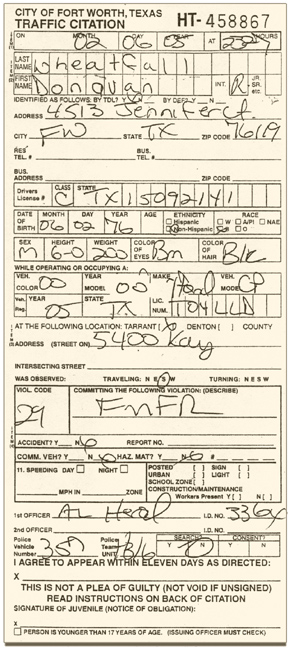 CITY OF FORT WORTH, TEXAS
TRAFFIC CITATION HT- 458867
ON MONTH DAY YEAR AT HOURS
02 06 03
LAST NAME Wheatfall
FIRST NAME Donovan INT. R JR. SR. etc.
IDENTIFIED AS FOLLOWS: BY TDL? Y N BY DEF? Y N
ADDRESS 4513 Jennifer Ct.
CITY FW STATE TX ZIP CODE 76119
RES. TEL. # BUS. TEL. #
BUS. ADDRESS
CITY STATE ZIP CODE
Drivers License # CLASS C STATE TX 15092141
DATE OF BIRTH MONTH 06 DAY 02 YEAR 76 AGE ETHNICITY Hispanic Non-Hispanic RACE W A/PI B NAE O
SEX M HEIGHT 6-0 WEIGHT 200 COLOR OF EYES Brn COLOR OF HAIR Blk
WHILE OPERATING OR OCCUPYING A:
VEH. COLOR 00 VEH. MODEL 00 MAKE VEH. MODEL
Veh. Reg. YEAR 05 STATE TX LIC. NUM.
AT THE FOLLOWING LOCATION: TARRANT [ ] DENTON [ ] COUNTY
ADDRESS (STREET ON) 5400 Kay
INTERSECTING STREET
WAS OBSERVED: TRAVELING: N E S W TURNING: N E S W
VIOL. CODE COMMITTING THE FOLLOWING VIOLATION: (DESCRIBE)
29 FMFR
ACCIDENT? Y N REPORT NO.
COMM. VEH? Y N HAZ. MAT? Y N #
11. SPEEDING DAY NIGHT
MPH IN ZONE
POSTED [ ] SIGN [ ]
URBAN [ ] LIGHT [ ]
SCHOOL ZONE [ ]
CONSTRUCTION/MAINTENANCE
Workers Present Y [ ] N [ ]
1st OFFICER I.D. NO.
2nd OFFICER I.D. NO.
Police Vehicle Number 357 Police Team Unit B16 SEARCH? Y N CONSENT? Y N
I AGREE TO APPEAR WITHIN ELEVEN DAYS AS DIRECTED:
X
THIS IS NOT A PLEA OF GUILTY (NOT VOID IF UNSIGNED)
READ INSTRUCTIONS ON BACK OF CITATION
SIGNATURE OF JUVENILE (NOTICE OF OBLIGATION):
X
PERSON IS YOUNGER THAN 17 YEARS OF AGE. (ISSUING OFFICER MUST CHECK)